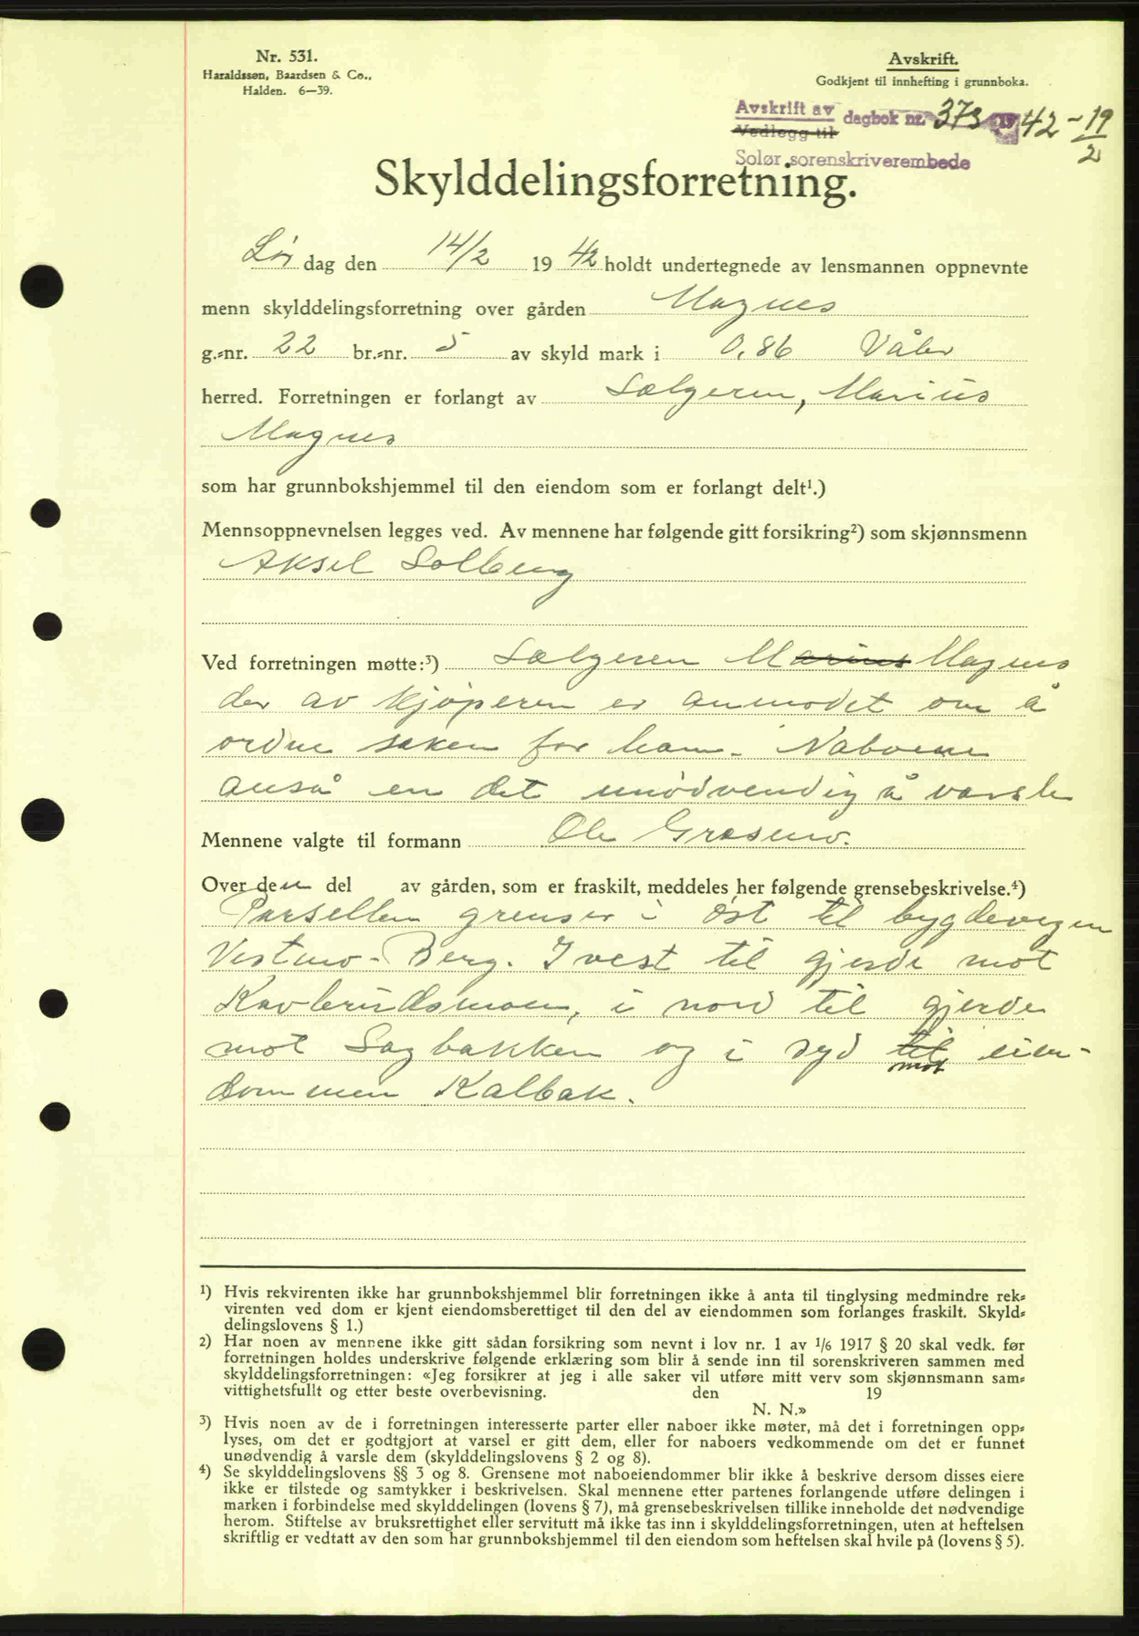 Nr. 531.
Haraldssøn, Baardsen & Co.,
Halden. 6—39.
Avskrift.
Godkjent til innhefting i grunnboka.
Avskrift av
Vedlegg til
dagbok nr. 373 19 42 - 19/2
Solør sorenskriverembede
Skylddelingsforretning.
Lør dag den 14/2 19 42 holdt undertegnede av lensmannen oppnevnte
menn skylddelingsforretning over gården Magnes
g.=nr. 22 br.=nr. 5 av skyld mark i 0,86 Våler
herred. Forretningen er forlangt av Sælgeren, Marius
Magnes
som har grunnbokshjemmel til den eiendom som er forlangt delt¹.)
Mennsoppnevnelsen legges ved. Av mennene har følgende gitt forsikring²) som skjønnsmenn
Aksel Solberg
Ved forretningen møtte:³) Sælgeren Marius Magnes
der av kjøperen er anmodet om å
ordne saken for ham. Naboene
anså en det unødvendig å varsle
Mennene valgte til formann Ole Græsmo.
Over den del av gården, som er fraskilt, meddeles her følgende grensebeskrivelse.⁴)
Parsellen grenser i øst til bygdevegen
Vestmo - Berg. I vest til gjerde mot
i nord til gjerde
mot Sagbakken og i syd til mot eien-
dommen Kalbak.
¹) Hvis rekvirenten ikke har grunnbokshjemmel blir forretningen ikke å anta til tinglysing medmindre rek=
virenten ved dom er kjent eiendomsberettiget til den del av eiendommen som forlanges fraskilt. Skyld=
delingslovens § 1.)
²) Har noen av mennene ikke gitt sådan forsikring som nevnt i lov nr. 1 av 1/6 1917 § 20 skal vedk. før
forretningen holdes underskrive følgende erklæring som blir å sende inn til sorenskriveren sammen med
skylddelingsforretningen: «Jeg forsikrer at jeg i alle saker vil utføre mitt verv som skjønnsmann sam=
vittighetsfullt og etter beste overbevisning. den 19
N. N.»
³) Hvis noen av de i forretningen interesserte parter eller naboer ikke møter, må det i forretningen opp=
lyses, om det er godtgjort at varsel er gitt dem, eller for naboers vedkommende om det er funnet
unødvendig å varsle dem (skylddelingslovens § 2 og 8).
⁴) Se skylddelingslovens §§ 3 og 8. Grensene mot naboeiendommer blir ikke å beskrive dersom disses eiere
ikke er tilstede og samtykker i beskrivelsen. Skal mennene etter partenes forlangende utføre delingen i
marken i forbindelse med skylddelingen (lovens § 7), må grensebeskrivelsen tillike inneholde det nødvendige
herom. Stiftelse av bruksrettighet eller servitutt må ikke tas inn i skylddelingsforretningen, uten at heftelsen
skriftlig er vedtatt av den som har grunnbokshjemmel til den eiendom som heftelsen skal hvile på (lovens § 5).